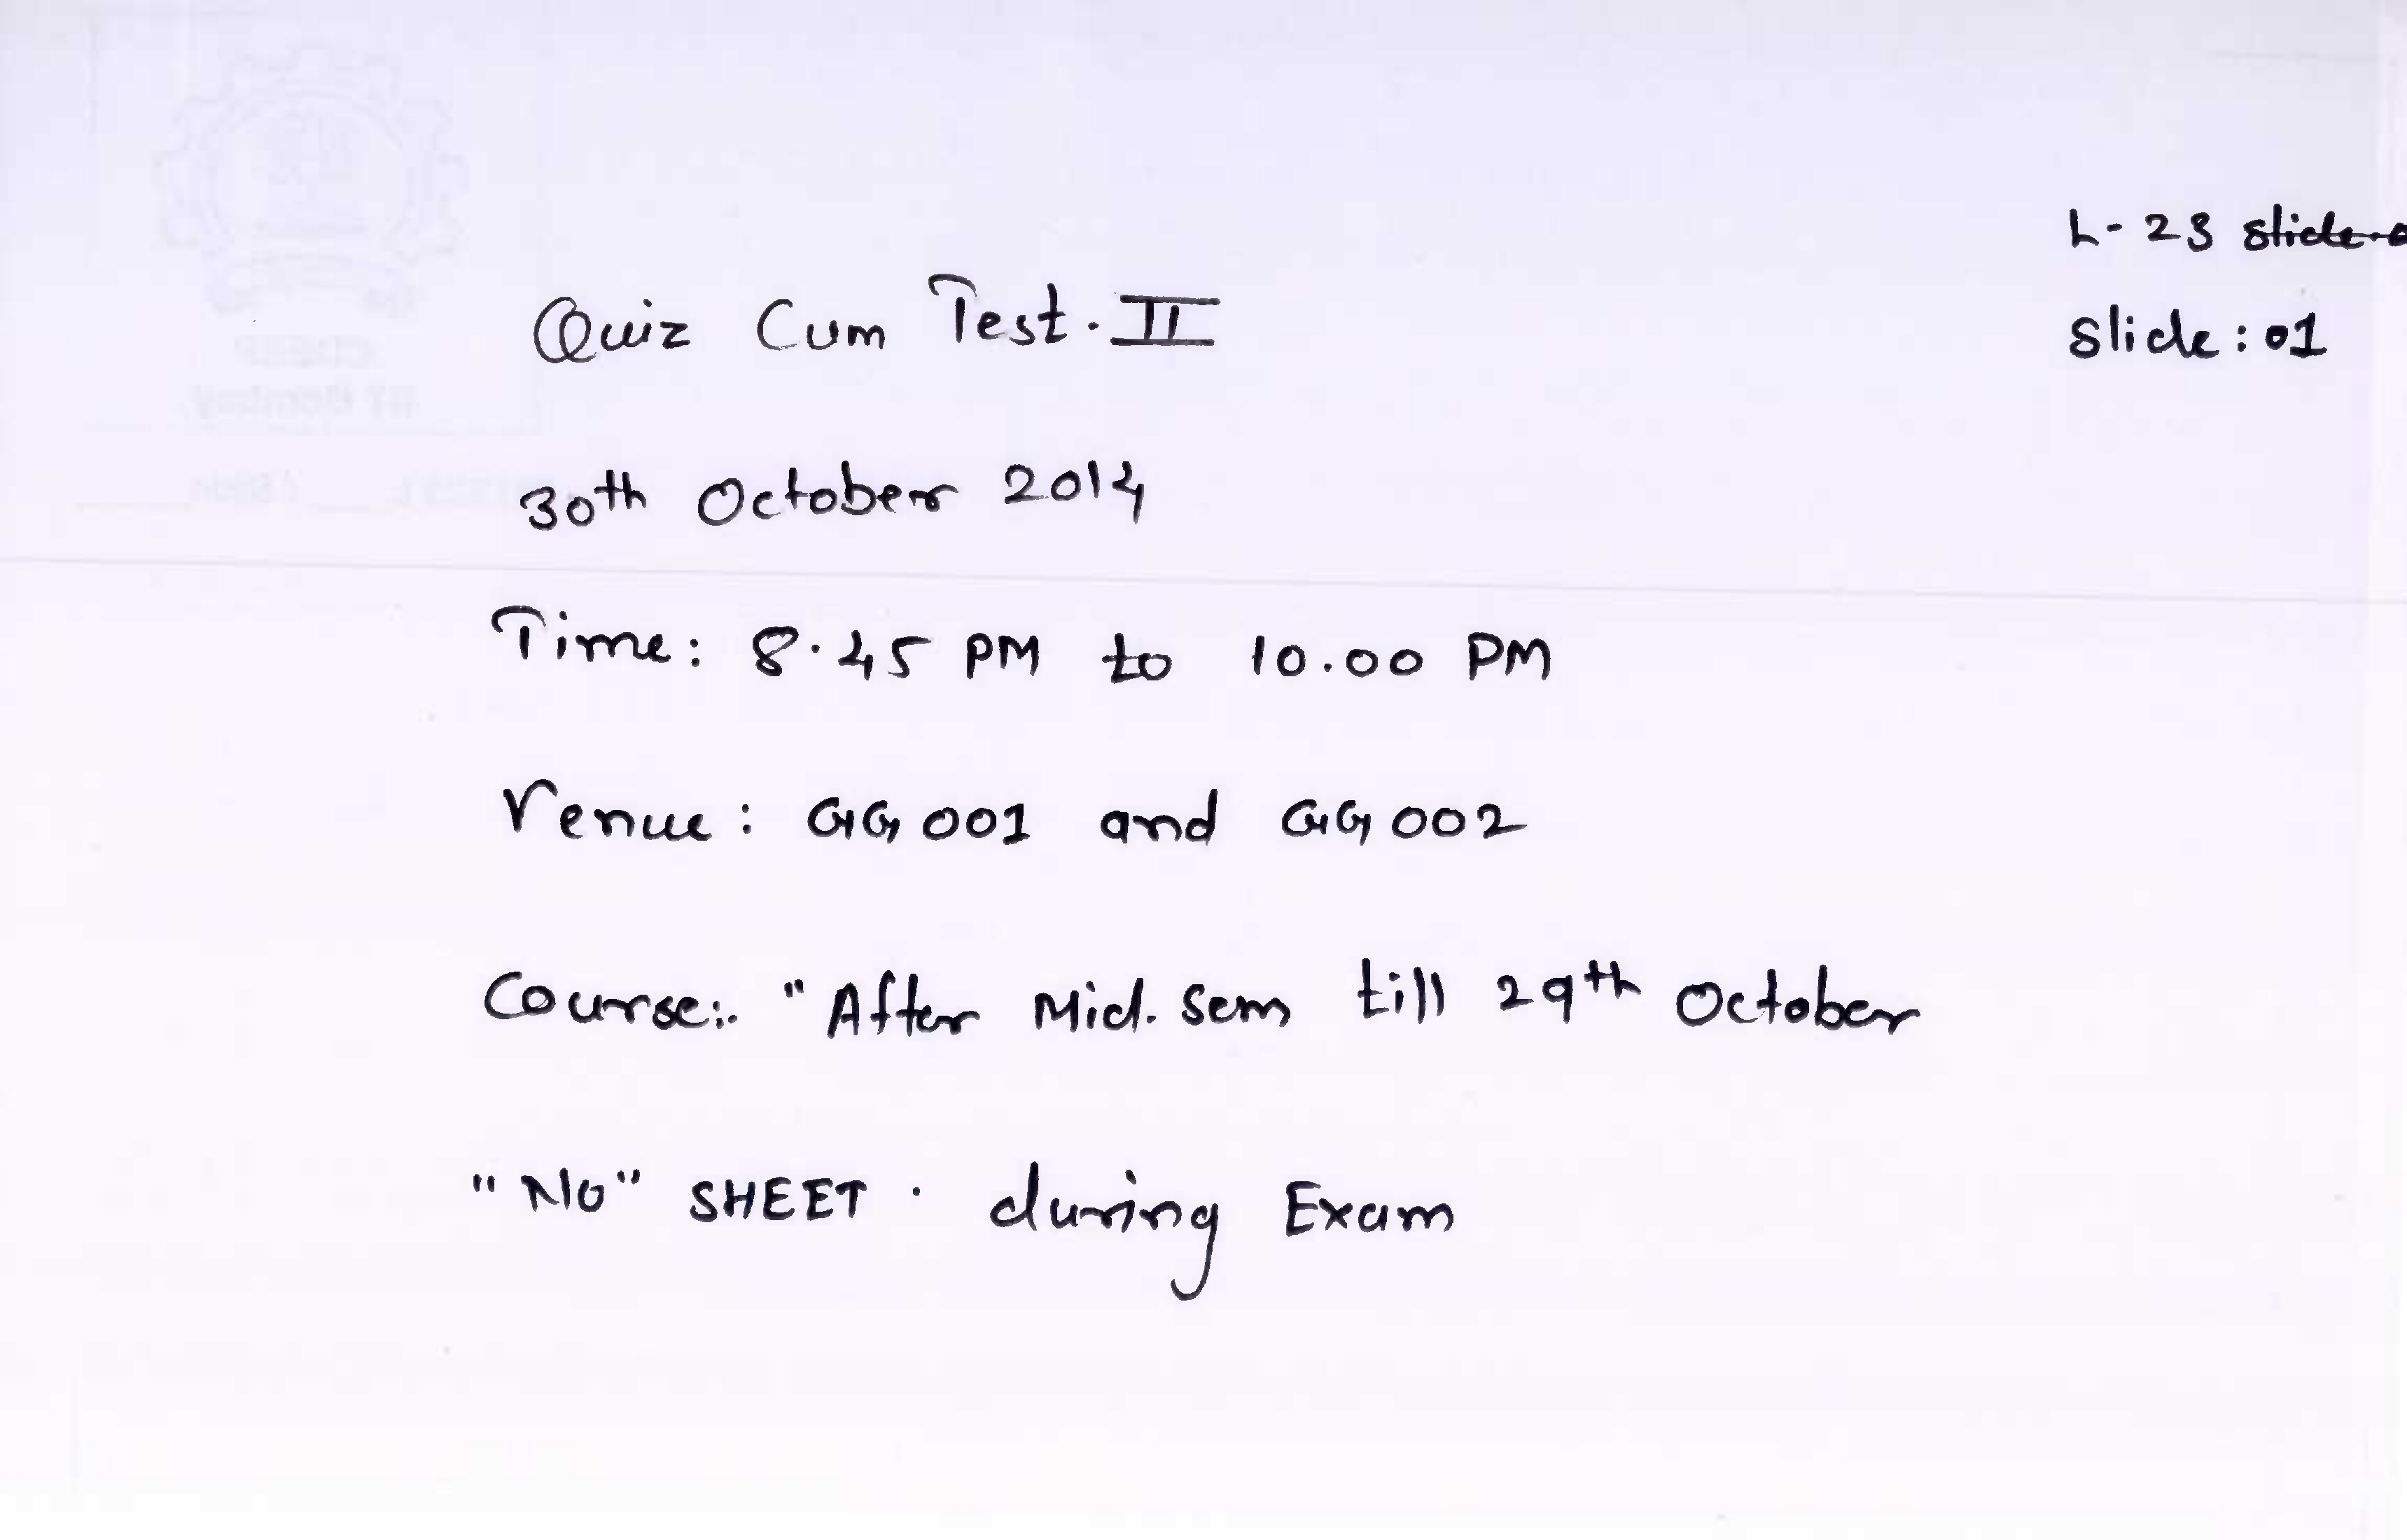 L-23
Slide: 01
Quiz Cum Test-II
30th October 2014
Time: 8.45 PM to 10.00 PM
Venue: GG 001 and GG 002
Course:- "After Mid. Sem till 29th October
"NO" SHEET . during Exam